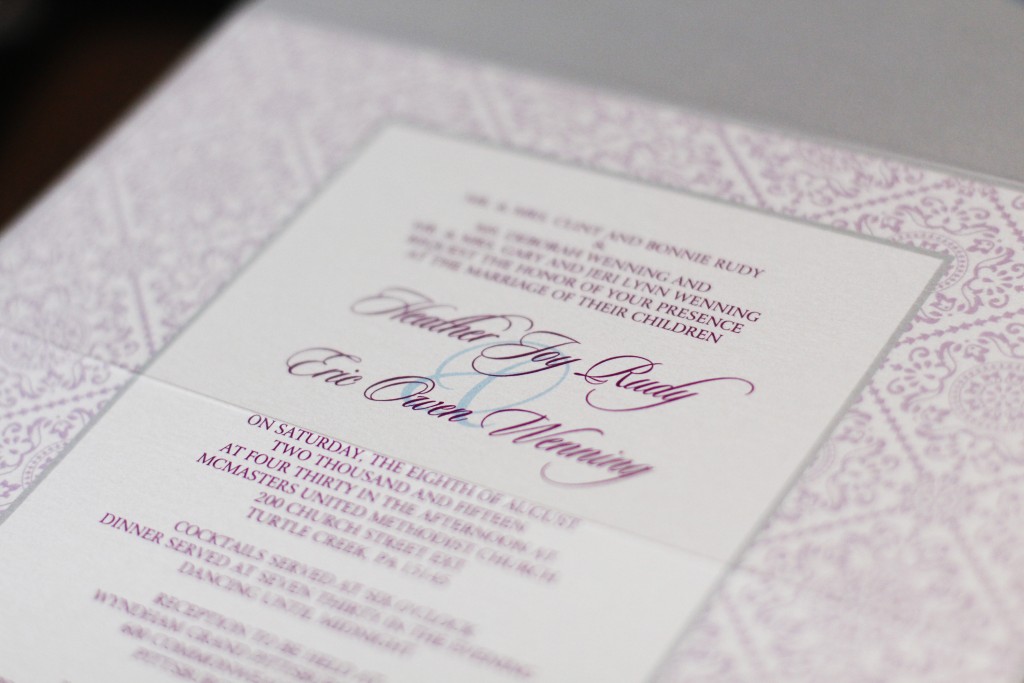 MR. & MRS. CLINT AND BONNIE RUDY
&
MS. DEBORAH WENNING AND
MR. & MRS. GARY AND JERI LYNN WENNING
REQUEST THE HONOR OF YOUR PRESENCE
AT THE MARRIAGE OF THEIR CHILDREN
Heather Joy Rudy
&
Eric Owen Wenning
ON SATURDAY, THE EIGHTH OF AUGUST
TWO THOUSAND AND FIFTEEN
AT FOUR THIRTY IN THE AFTERNOON AT
MCMASTERS UNITED METHODIST CHURCH
200 CHURCH STREET EXT
TURTLE CREEK, PA 15145
COCKTAILS SERVED AT SIX O'CLOCK
DINNER SERVED AT SEVEN THIRTY IN THE EVENING
DANCING UNTIL MIDNIGHT
RECEPTION TO BE HELD AT
WYNDHAM GRAND PITTSBURGH
600 COMMONWEALTH
PITTSBURGH